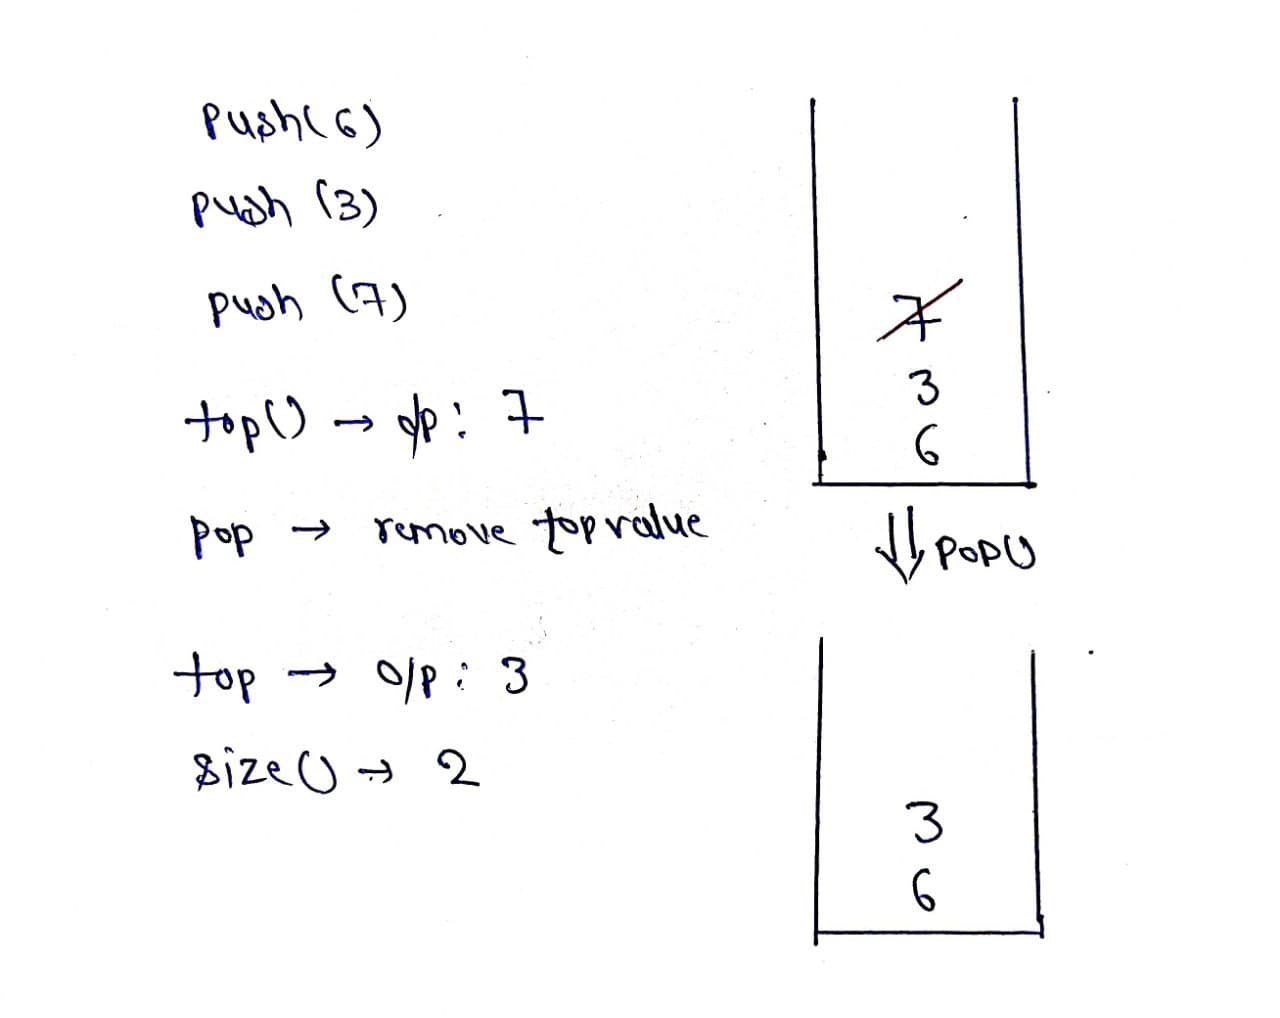 Push(6)
push (3)
push (7)
top() → o/p: 7
pop → remove top value
top → o/p: 3
size() → 2
7
3
6
POP()
3
6